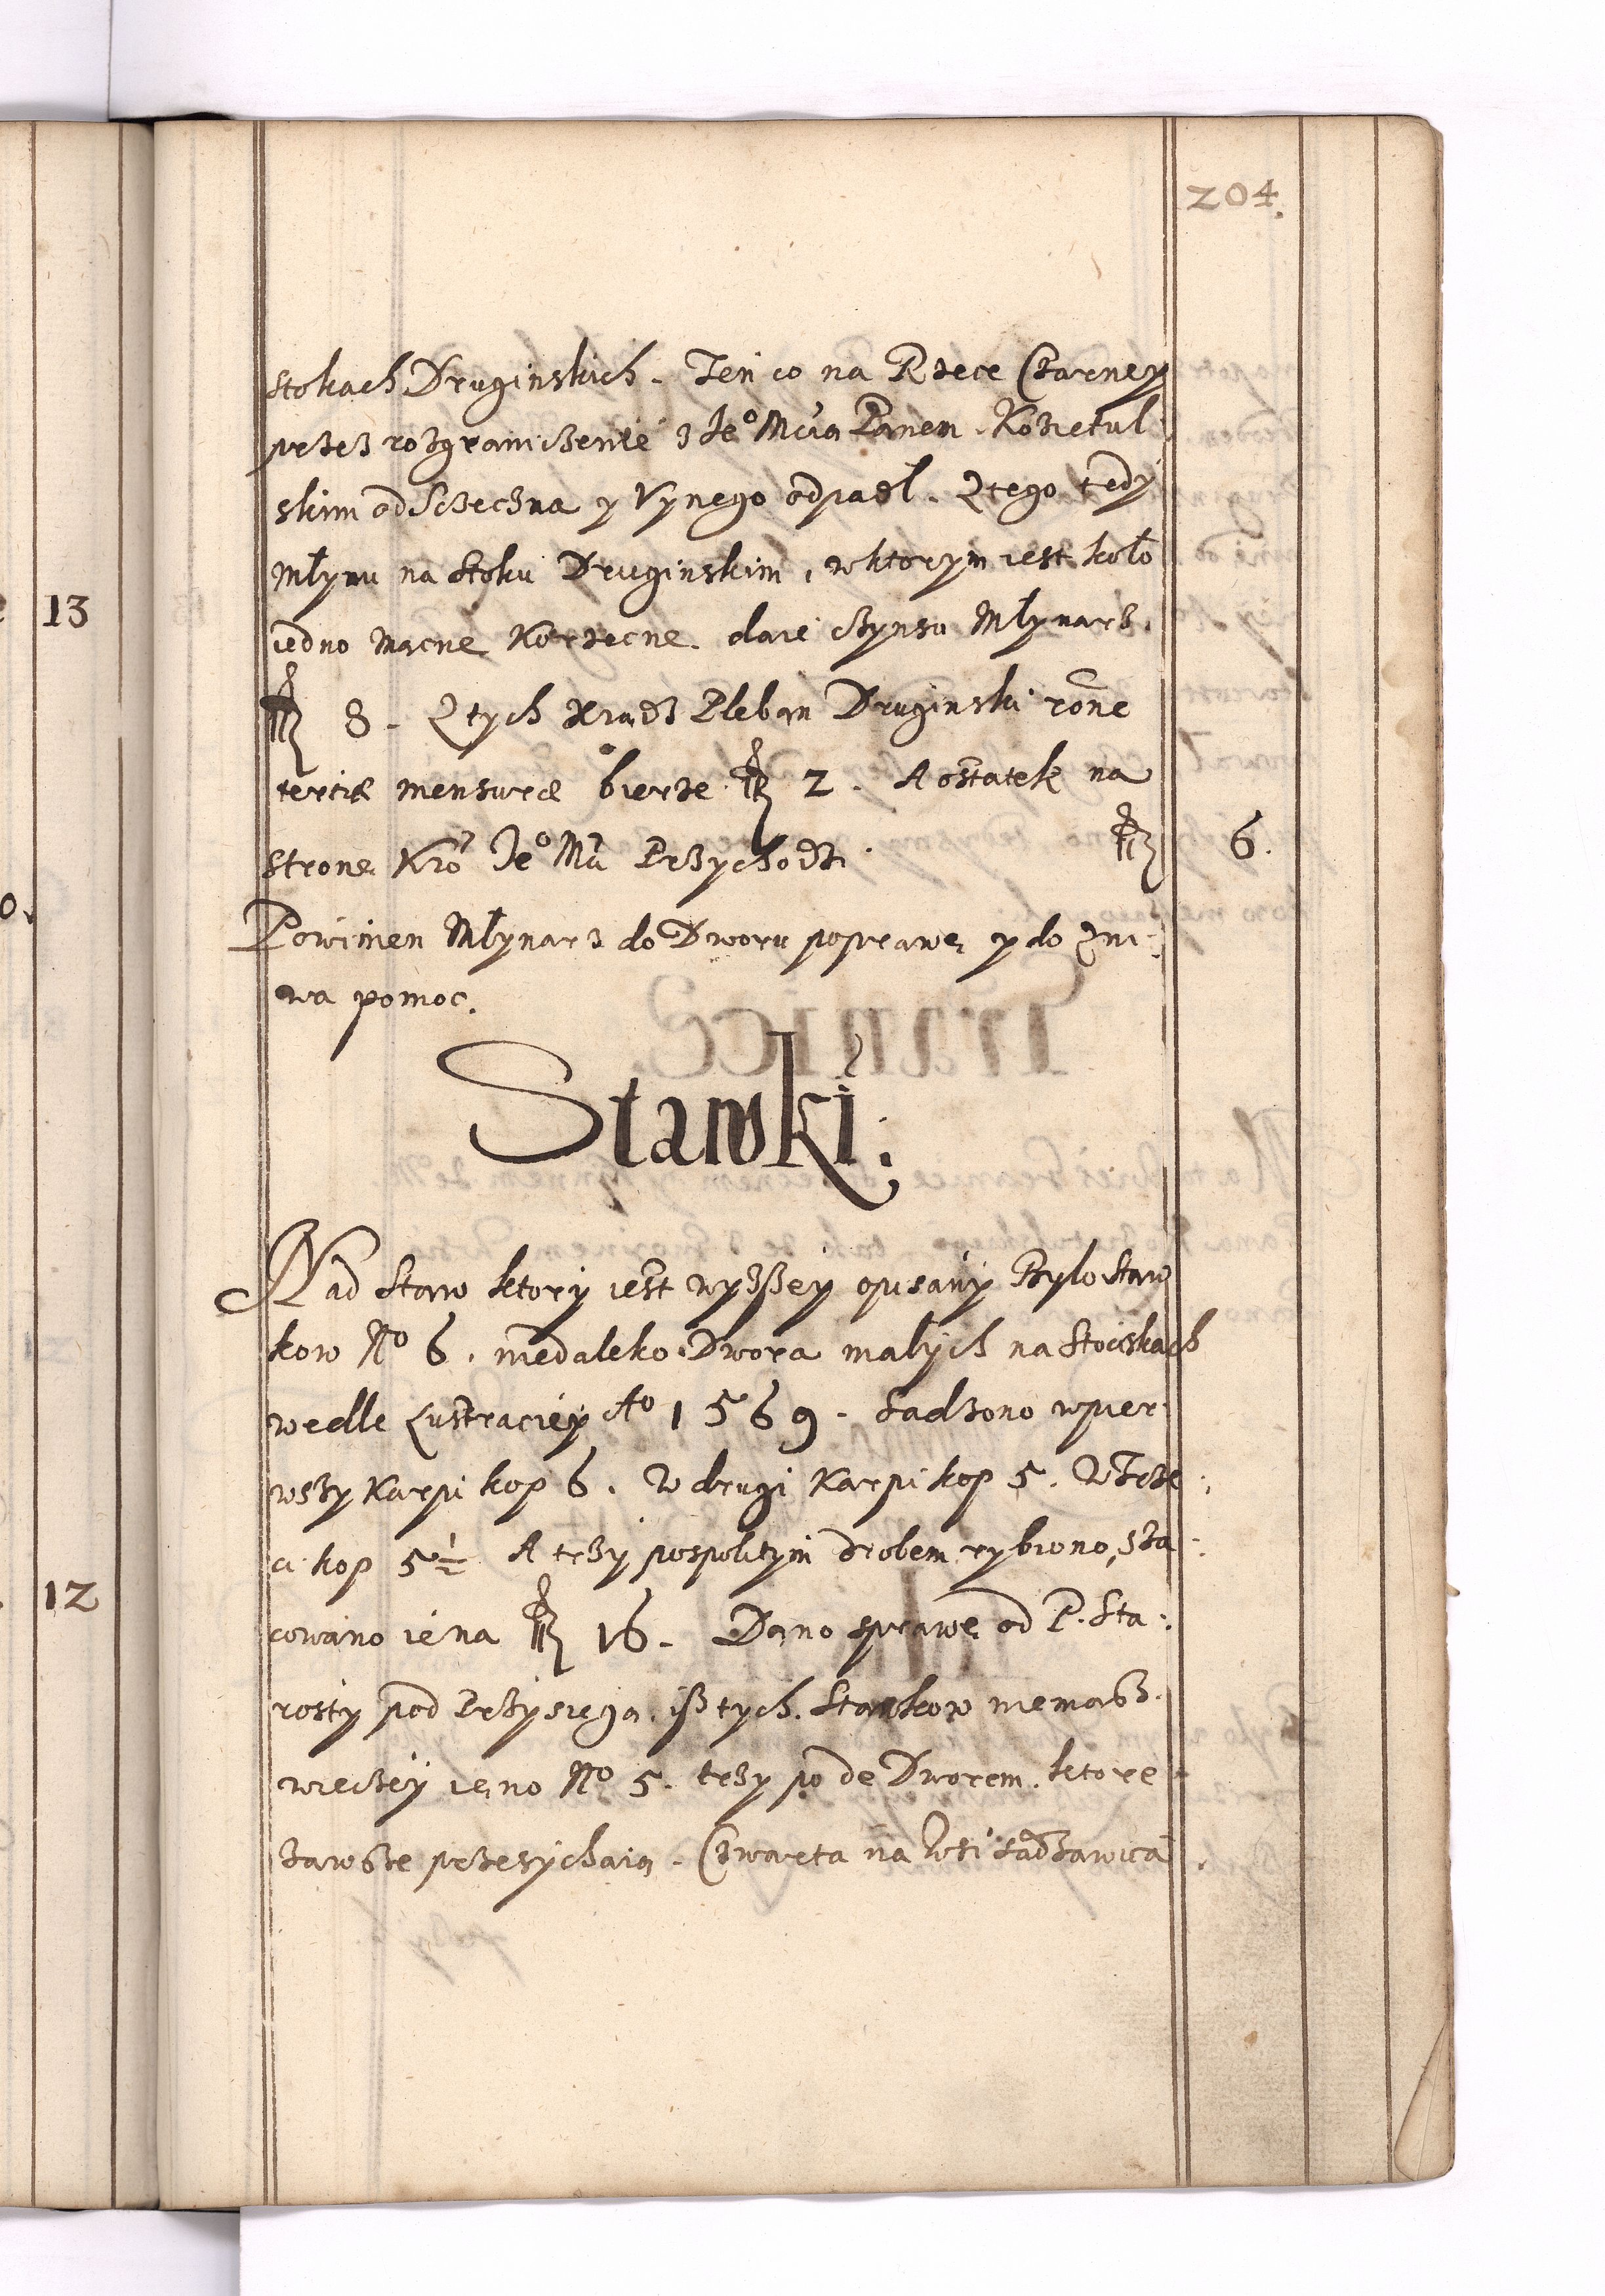 204.
stokach Druginskich. Ten co na Rzece Czarney
przez rozgraniczenie z Jeº Mcią Panem Kozietul
skim od Sczeczna y Vynego odpadł. Ztego tedy
Młynu na stoku Druginskim, wktorym iest koło
iedno macne Korzecne. daie czynsu Młynarz.
8. Ztych Xiądz Pleban Druginski rõne
terciæ mensuræ bierze 2. A ostatek na
strone Kró Jeº Mci Przychodzi 6.
Powinien Młynarz do Dworu poprawę y do Zni:
wa pomoc.
Stawki.
Nad Staw ktory iest wyzszey opisany Bylo staw
kow Nº 6. niedaleko Dwora małych na Stoiskach
wedle Lustraciey Aº 1569. Sadzono wpier:
wszy Karpi kop 6. W drugi Karpi kop 5. W Trze:
ci kop 5½ A trzy pospolitym drobem rybiono, sza:
cowano ie na 16. Dano sprawę od P. Sta:
rosty pod Przysięgą. isz tych Stawkow niemasz
wieczey ieno Nº 5. trzy po de Dworem. ktore
zawsze przesychaią. Czwarta na Wsi sadzawica.
13
o.
12